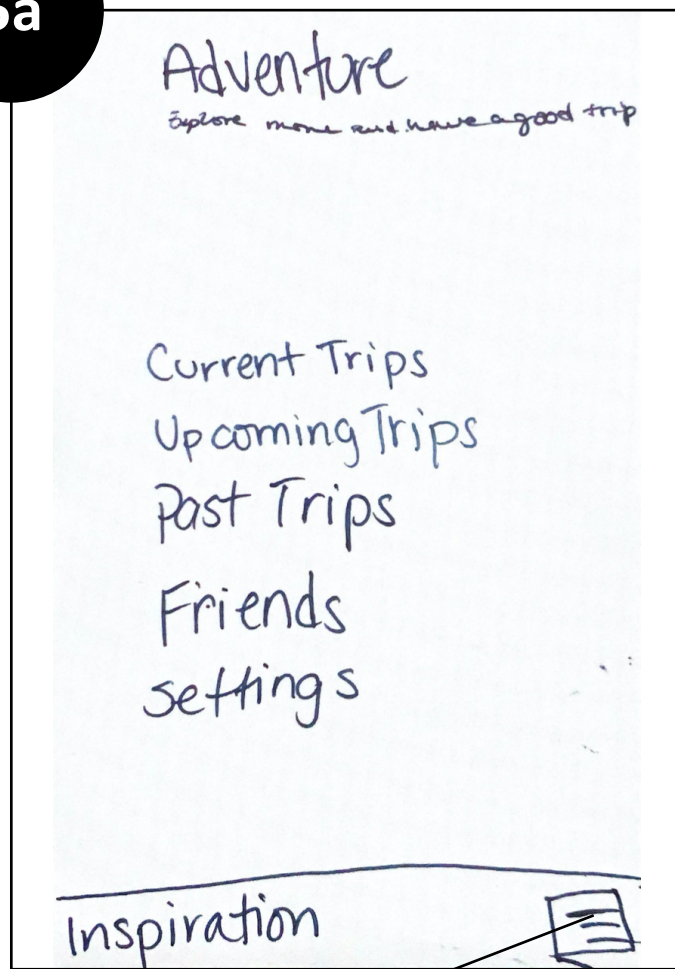 Adventure
Explore more and have a good trip
Current Trips
Upcoming Trips
Past Trips
Friends
settings
Inspiration